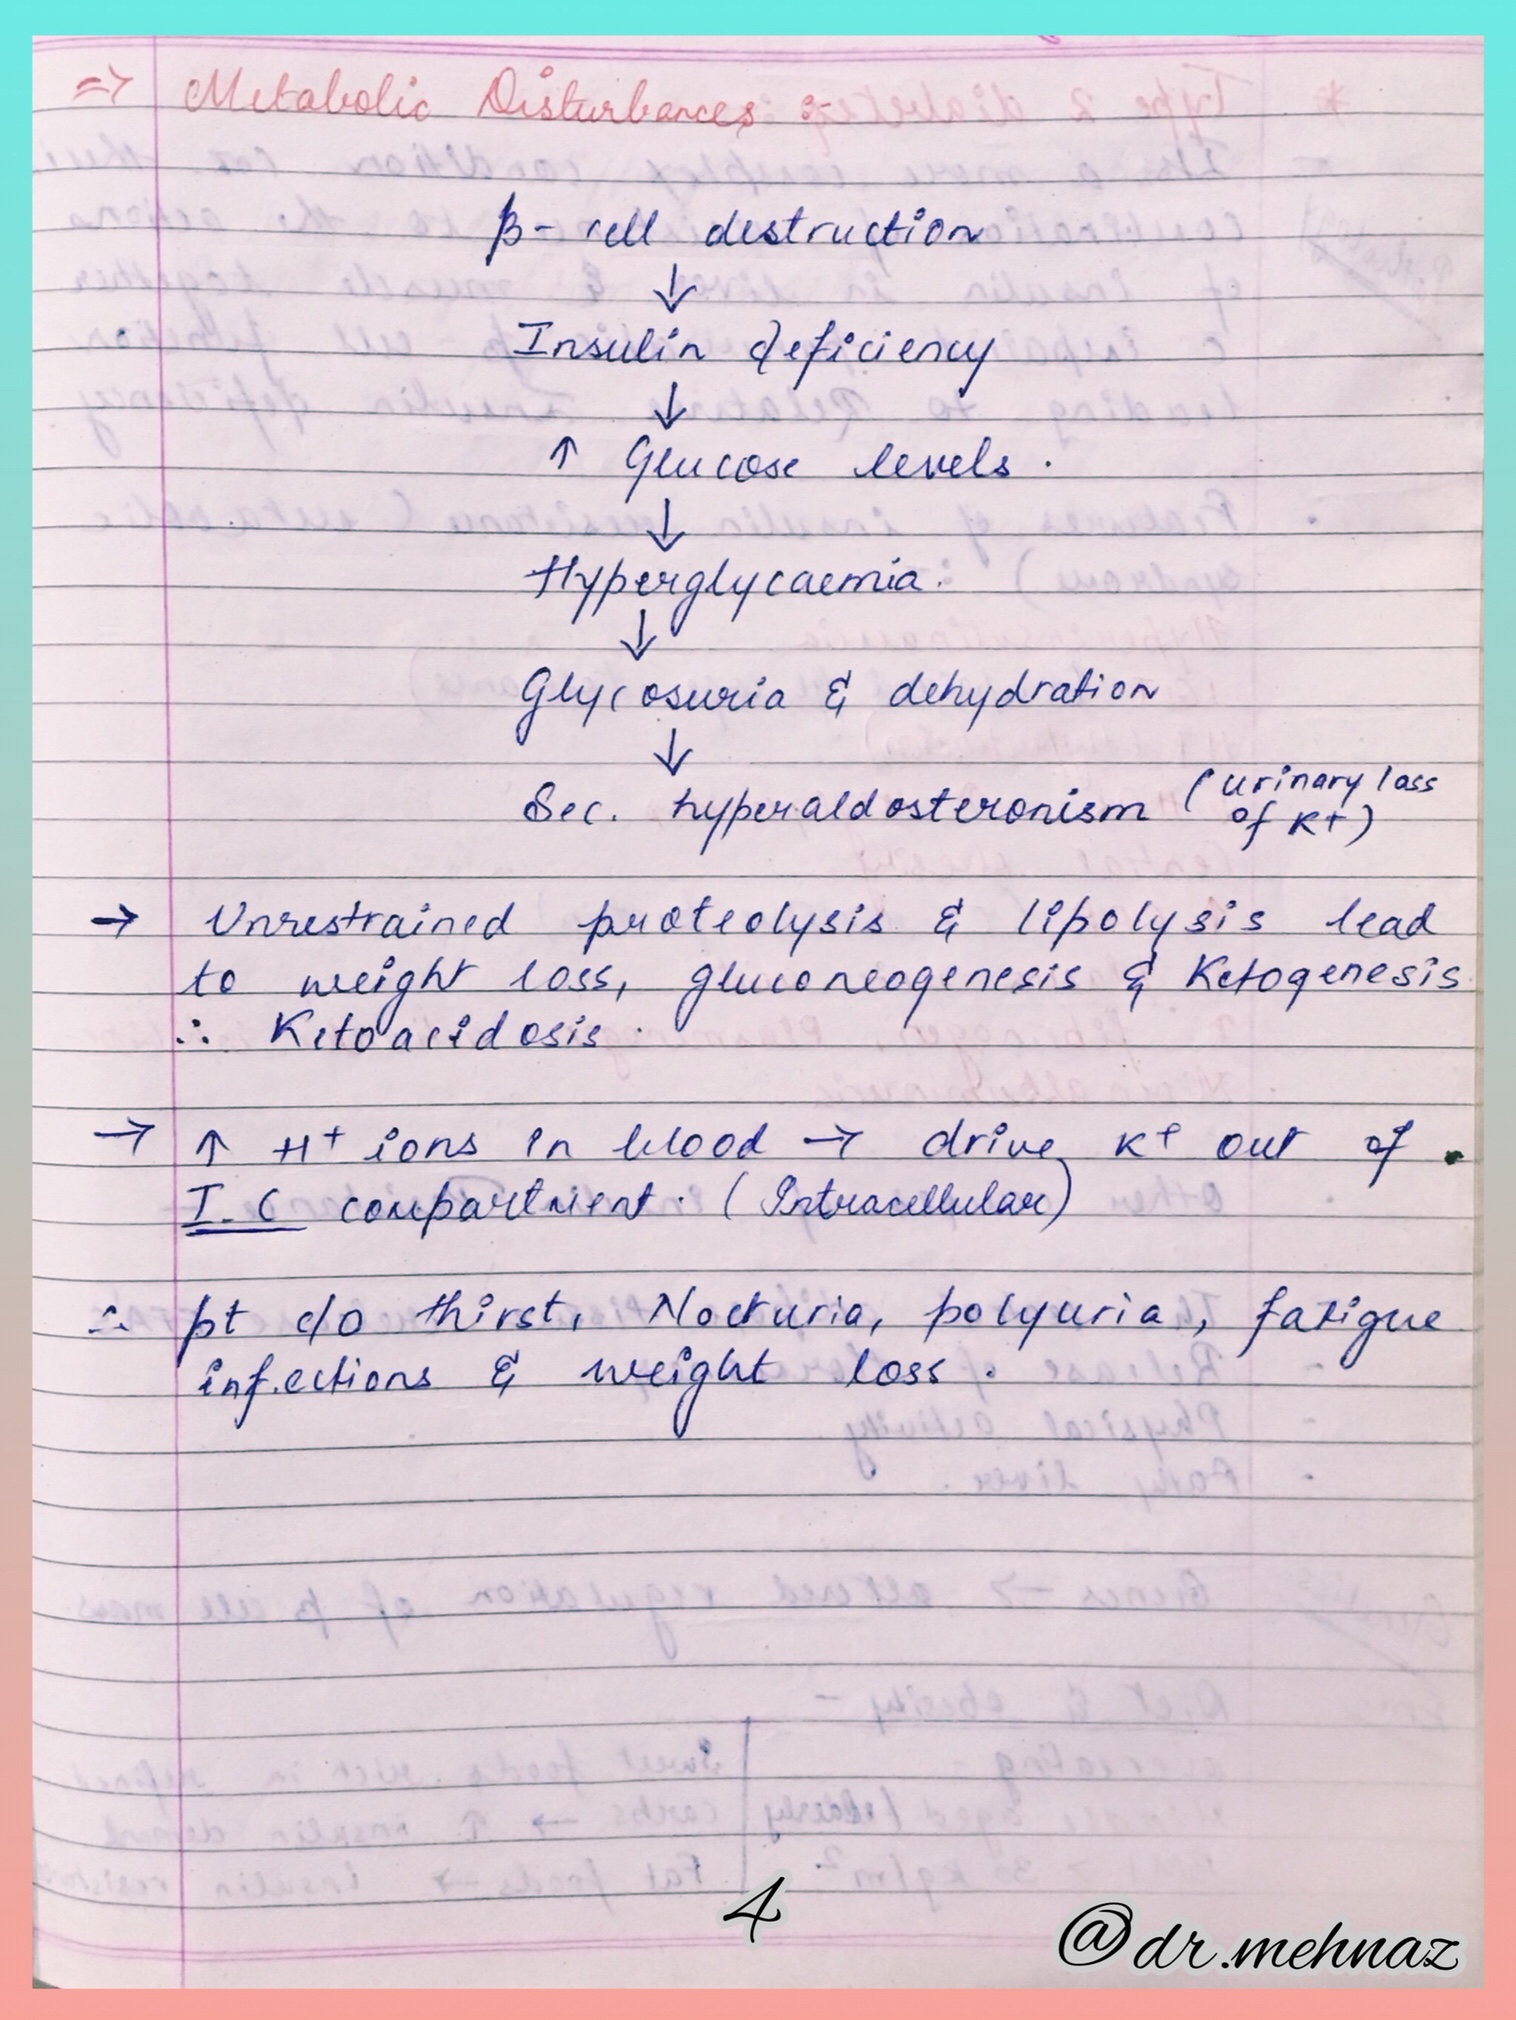 ⇒ Metabolic Disturbances :-
β- cell destruction
↓
Insulin deficiency
↓
↑ Glucose levels .
↓
Hyperglycaemia.
↓
Glycosuria & dehydration
↓
Sec. hyperaldosteronism (urinary loss
of K+)
→ Unrestrained proteolysis & lipolysis lead
to weight loss, gluconeogenesis & Ketogenesis
∴ Ketoacidosis .
→ ↑ H+ ions in blood → drive K+ out of
I.C compartment. (Intracellular)
∴ pt c/o thirst, Nocturia, polyuria, fatigue
infections & weight loss .
4
@dr.mehnaz